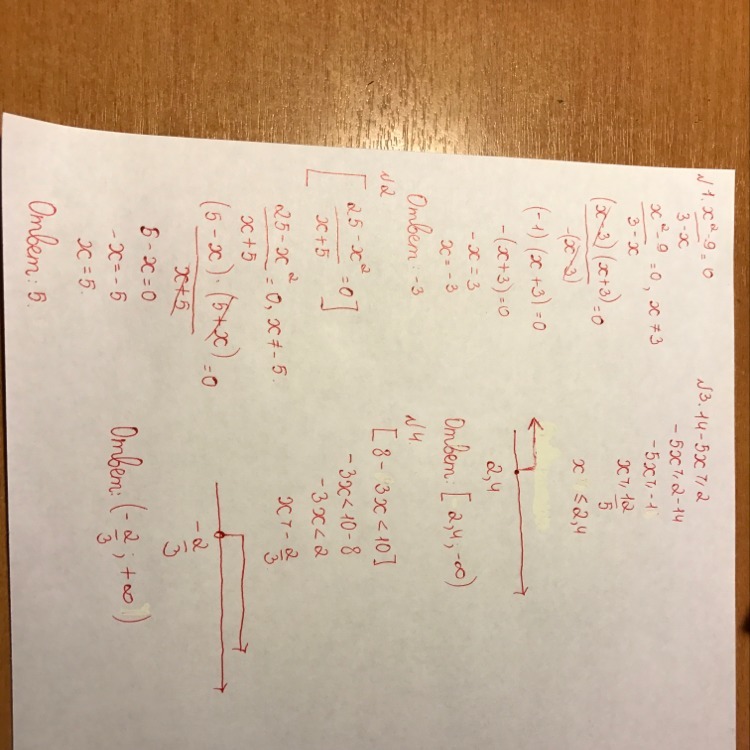 №1. x²-9/3-x = 0
x²-9/3-x = 0, x ≠ 3
(x-3)(x+3)/-(x-3) = 0
(-1)(x+3) = 0
-(x+3) = 0
-x = 3
x = -3
Ответ: -3
№2
[25-x²/x+5 = 0]
25-x²/x+5 = 0, x ≠ -5.
(5-x)·(5+x)/x+5 = 0
5-x = 0
-x = -5
x = 5.
Ответ: 5.
№3. 14-5x ≥ 2
-5x ≥ 2-14
-5x ≥ -1
x ≥ 12/5
x ≤ 2,4
2,4
Ответ: [2,4; -∞)
№4.
[8-3x < 10]
-3x < 10-8
-3x < 2
x > -2/3
-2/3
Ответ: (-2/3; +∞)